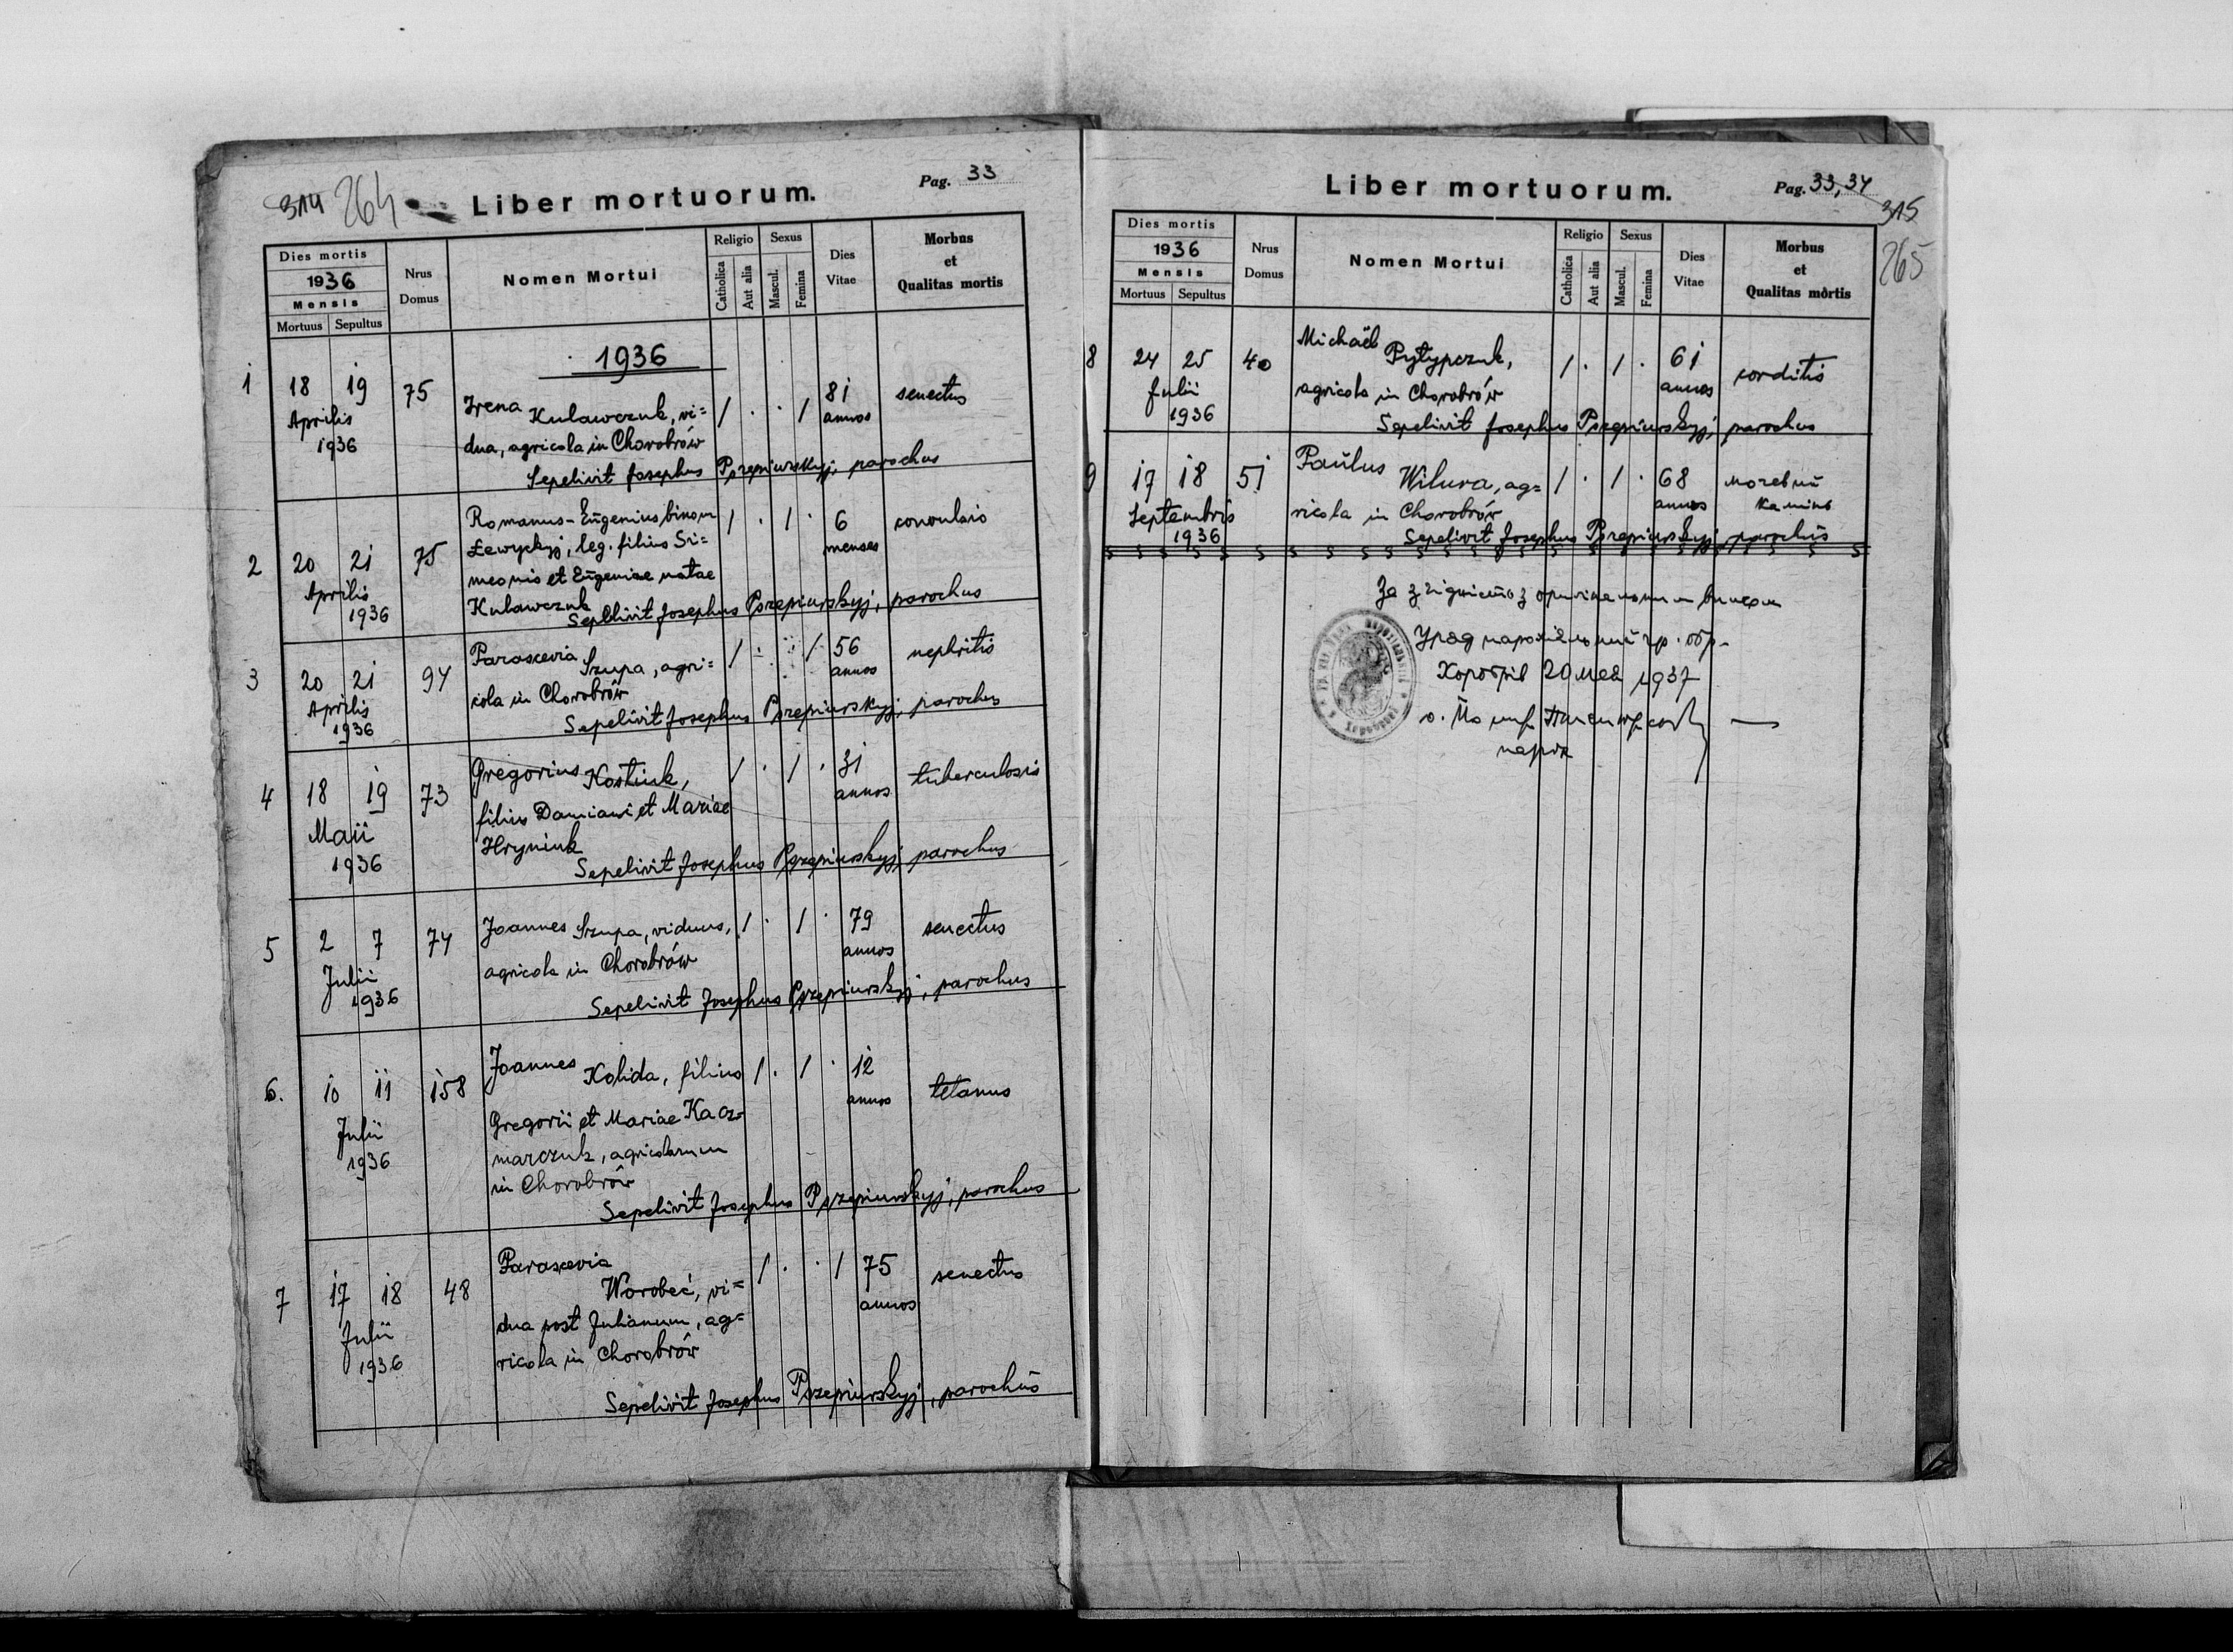 314 264 Liber mortuorum. Pag. 33
Dies mortis
1936
Mensis
Mortuus Sepultus
Nrus
Domus
Nomen Mortui
Religio
Catholica
Aut alia
Sexus
Mascul.
Femina
Dies
Vitae
Morbus
et
Qualitas mortis
1936
1 18 19 75 Irena Kulawczuk, vi= 1 . . 1 81 senectus
Aprilis dua, agricola in Chorobrów annos
1936
Sepelivit Josephus Pszepiurskyj, parochus
Romanus-Eugenius binom 1 . 1 . 6 convulsio
2 20 21 75 Łewyckyj, leg. filius Si= menses
Aprilis meonis et Eugeniae natae
1936 Kulawczuk
Sepelivit Josephus Pszepiurskyj, parochus
3 20 21 94 Parascevia Szupa, agri= 1 . . 1 56 nephritis
Aprilis cola in Chorobrów annos
1936
Sepelivit Josephus Pszepiurskyj, parochus
4 18 19 73 Gregorius Kostiuk, 1 . 1 . 31 tuberculosis
Maii filius Damiani et Mariae annos
1936 Hryniuk
Sepelivit Josephus Pszepiurskyj, parochus
5 2 7 74 Joannes Szupa, viduus, 1 . 1 . 79 senectus
Julii agricola in Chorobrów annos
1936
Sepelivit Josephus Pszepiurskyj, parochus
6. 10 11 158 Joannes Kolida, filius 1 . 1 . 12 tetanus
Julii Gregorii et Mariae Kacz= annos
1936 marczuk, agricolarum
in Chorobrów
Sepelivit Josephus Pszepiurskyj, parochus
7 17 18 48 Parascevia 1 . . 1 75 senectus
Worobeć, vi= annos
Julii dua post Julianum, ag=
1936 ricola in Chorobrów
Sepelivit Josephus Pszepiurskyj, parochus
Liber mortuorum. Pag. 33,34
315
265
Dies mortis
1936
Mensis
Mortuus Sepultus
Nrus
Domus
Nomen Mortui
Religio
Catholica
Aut alia
Sexus
Mascul.
Femina
Dies
Vitae
Morbus
et
Qualitas mortis
8 24 25 40 Michaël Pytypczuk, 1 . 1 . 61 corditis
Julii agricola in Chorobrów annos
1936
Sepelivit Josephus Pszepiurskyj, parochus
9 17 18 51 Paulus Wilura, ag= 1 . 1 . 68
Septembris ricola in Chorobrów annos камінь
1936
Sepelivit Josephus Pszepiurskyj, parochus
За з
Уряд парохіяльний гр. обр.
Хоробрів 20 мая 1937
о.
парох